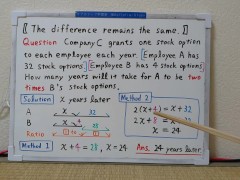 〚 The difference remains the same. 〛
Question Company C grants one stock option
to each employee each year. Employee A has
32 stock options. Employee B has 4 stock options.
How many years will it take for A to be two
times B's stock options.
Solution x years later
A
B
RATIO
Method 1 x+4=28, x=24
Method 2
2(x+4)=x+32
2x+8=x+32
x=24
Ans. 24 years later